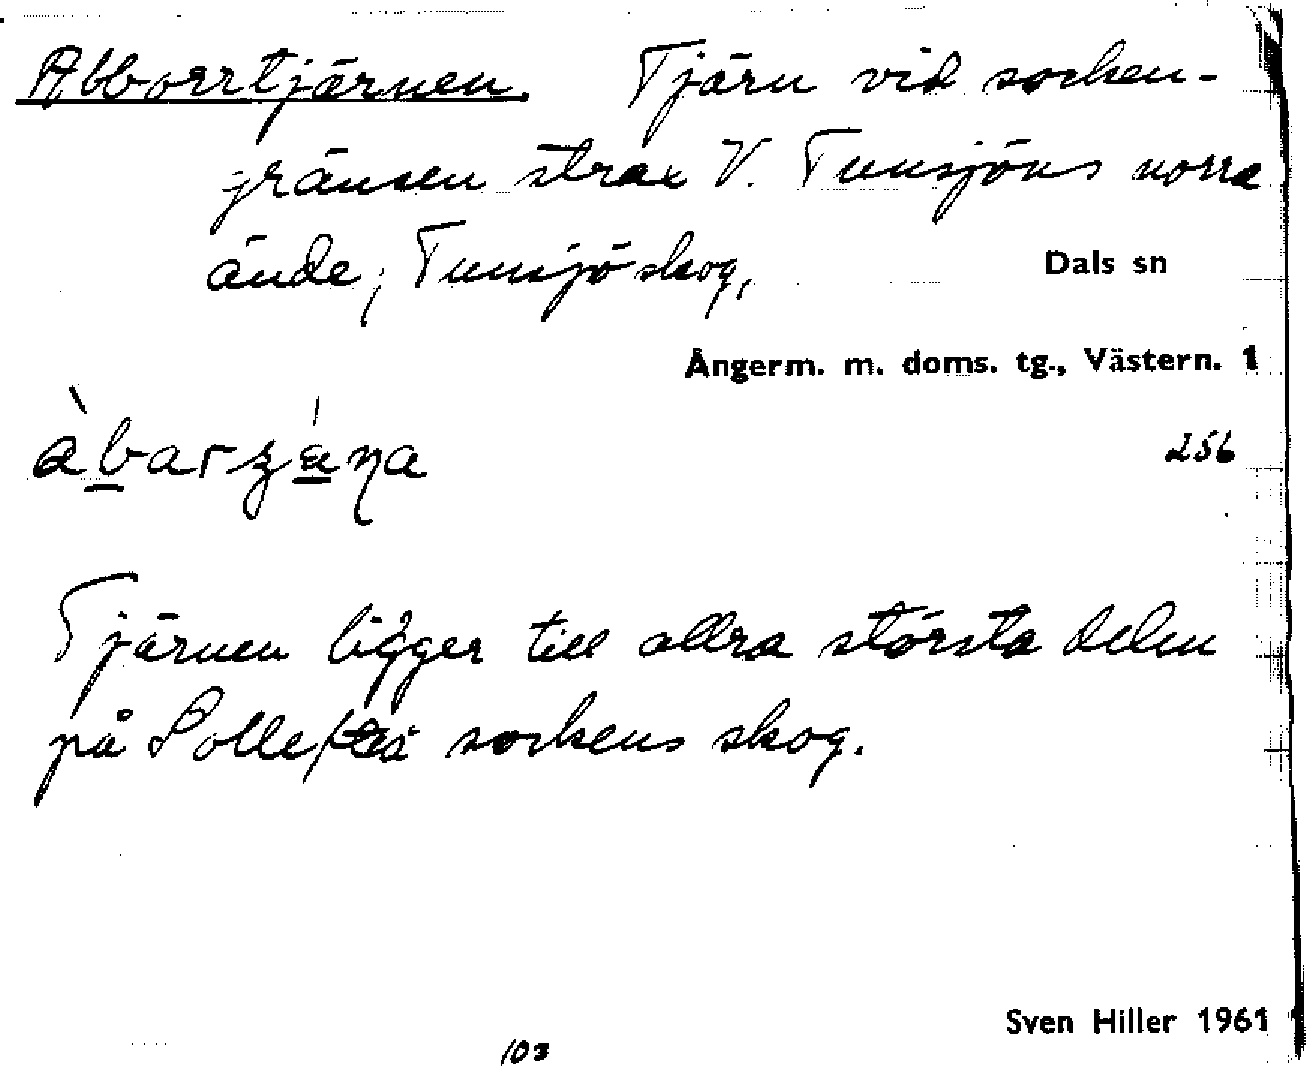 Abborrtjärnen. Tjärn vid socken-
gränsen strax V. Tunsjöns norra
ände, Tunsjö skog,
Dals sn
Ångerm. m. doms. tg., Västern. 1
256
Tjärnen ligger till allra största delen
på Sollefteå sockens skog.
Sven Hiller 1961
103